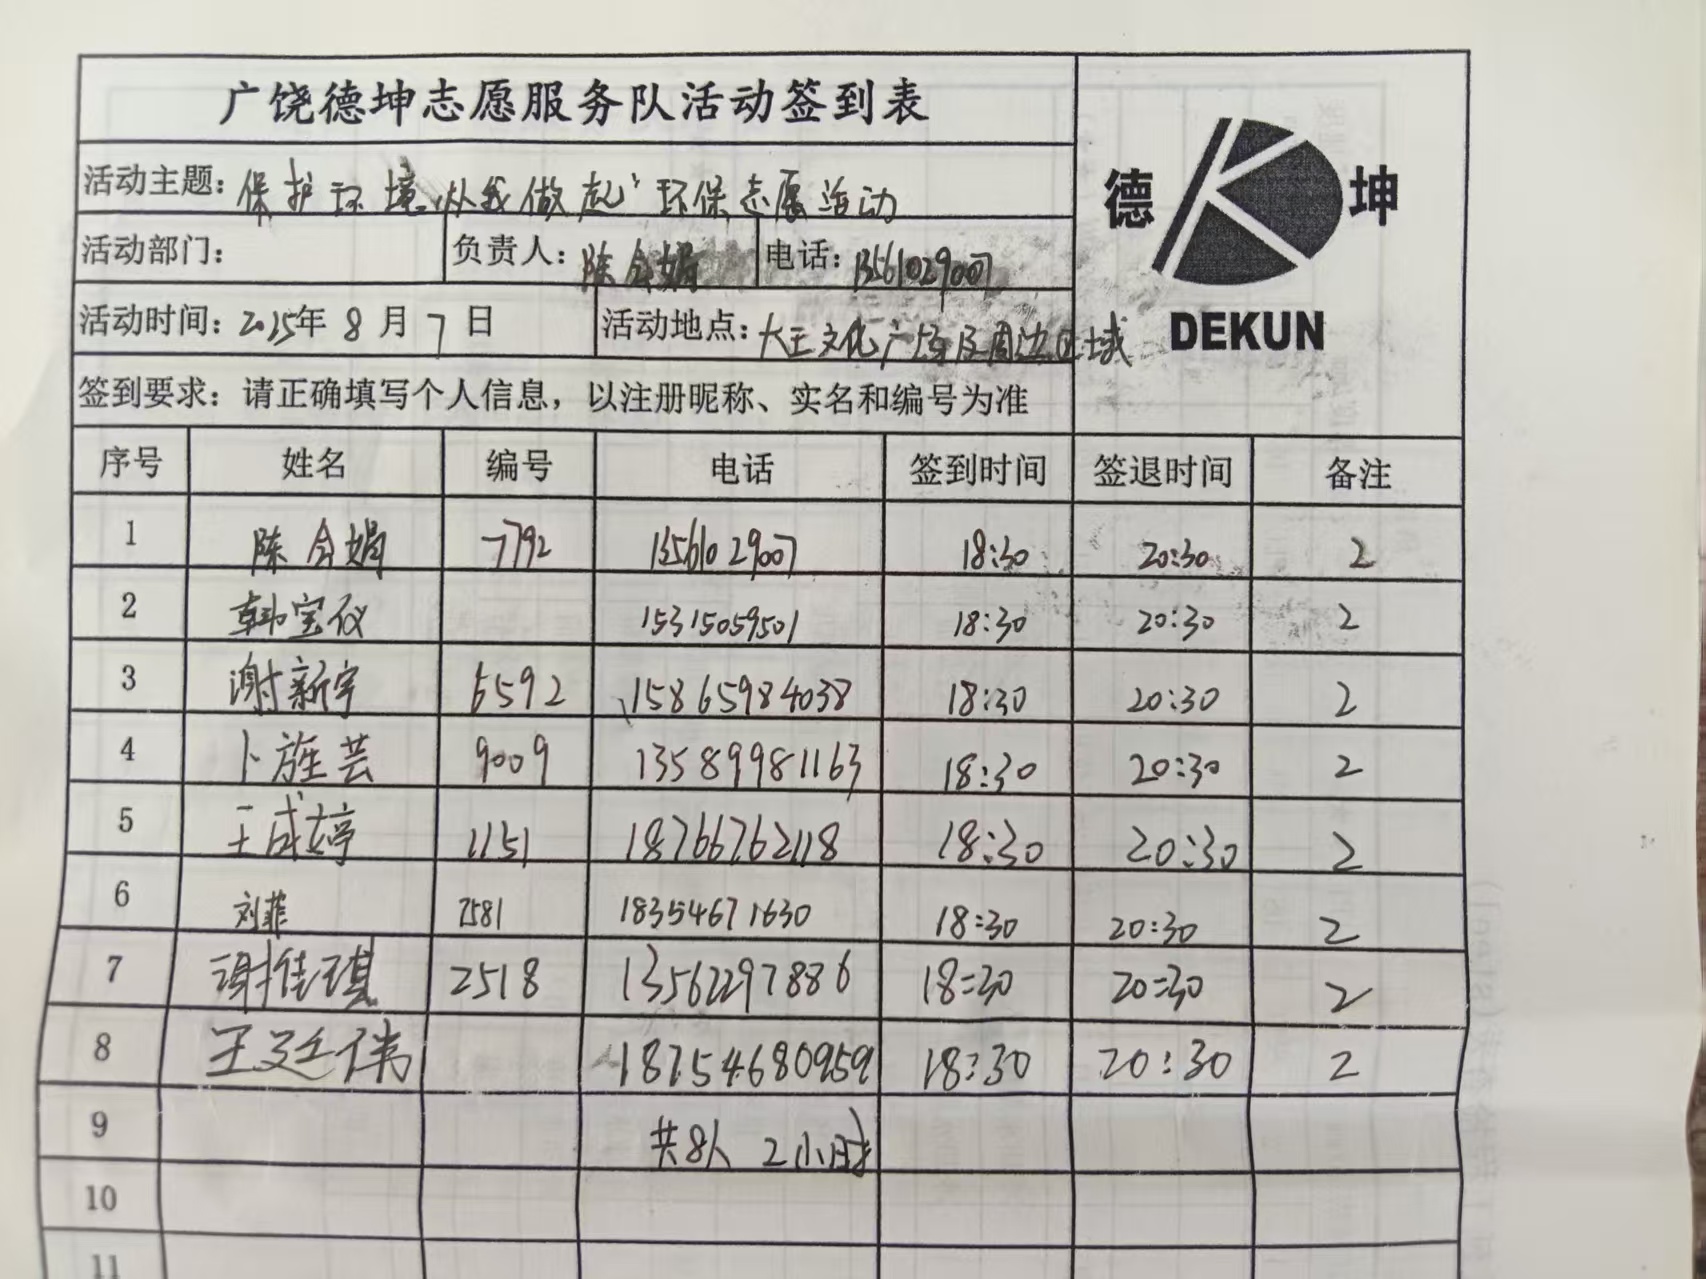 广饶德坤志愿服务队活动签到表
德 坤
DEKUN
活动主题：保护环境，从我做起"环保志愿活动
活动部门： 负责人：陈会娟 电话：13561029007
活动时间：2025年8月7日 活动地点：大王文化广场及周边区域
签到要求：请正确填写个人信息，以注册昵称、实名和编号为准
序号 姓名 编号 电话 签到时间 签退时间 备注
1 陈会娟 7792 13561029007 18:30 20:30 2
2 韩宝仪 15315059501 18:30 20:30 2
3 谢新宇 6592 15865984038 18:30 20:30 2
4 卜旌芸 9009 13589981163 18:30 20:30 2
5 王成婷 1151 18766762118 18:30 20:30 2
6 刘菲 7581 18354671630 18:30 20:30 2
7 谢佳琪 2518 13562297886 18:30 20:30 2
8 王廷伟 18754680959 18:30 20:30 2
9 共8人 2小时
10
11